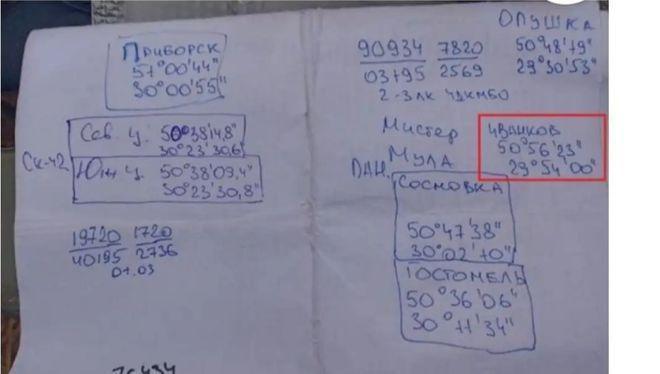 Приборск
51°00'44"
30°00'55"
Сев. ц. 50°38'14,8"
30°23'30,6"
Ск-42
Южн ц. 50°38'09,4"
30°23'30,8"
19720 1720
40195 2736
01.03
90934 7820
03+95 2569
ОПУШКА
50°48'19"
29°30'53"
Мистер
Мула
ИВАНКОВ
50°56'23"
29°54'00"
СОСНОВКА
50°47'38"
30°02'10"
ГОСТОМЕЛЬ
50°36'06"
30°11'34"